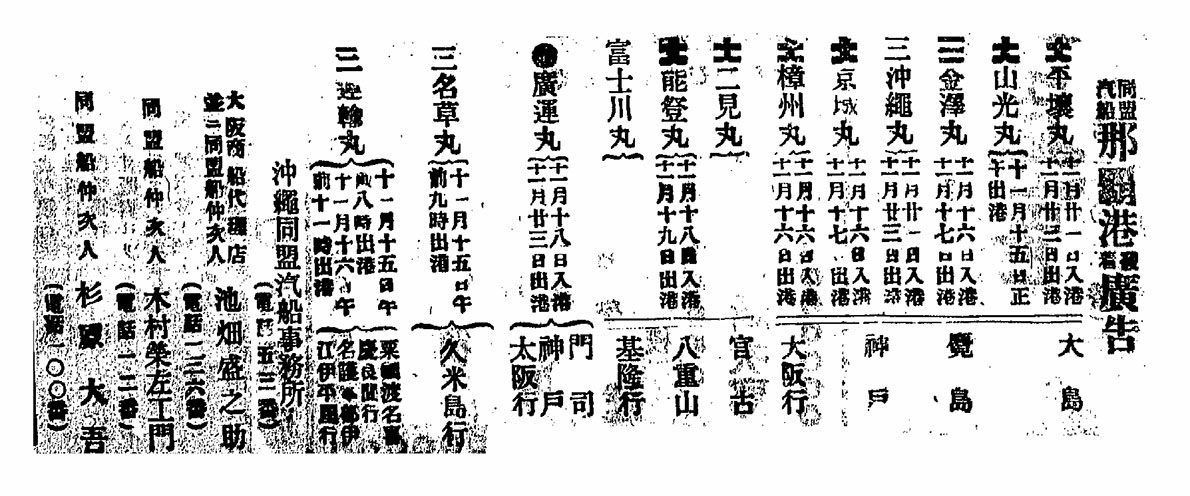 同盟
汽船
那覇港
發
着
廣告
平壤丸
十一月廿一日入港
十一月廿二日出港
山光丸
十一月十五日正
午出港
三金澤丸
十一月十六日入港
十一月十七日出港
三沖繩丸
十一月廿一日入港
十一月廿三日出港
京城丸
十一月十六日入港
十一月十七日出港
樟州丸
十一月十六日入港
十一月十六日出港
大島
神戸
大阪行
二見丸
能登丸
十一月十八日入港
十一月十九日出港
富士川丸
宮古
八重山
基隆行
廣運丸
十一月十八日入港
十一月廿三日出港
門司
神戸
太阪行
三名草丸
十一月十五日午
前九時出港
久米島行
運輸丸
十一月十五日午
前八時出港
十一月十六日午
前十一時出港
粟國渡名喜
慶良間行
江伊平屋行
沖繩同盟汽船事務所
(電話五三番)
大阪商船代理店
並ニ同盟船仲次人
池畑盛之助
(電話一二六番)
同盟船仲次人
木村榮左工門
(電話一一二番)
同盟船仲次人
杉原大吾
(電話一〇〇番)